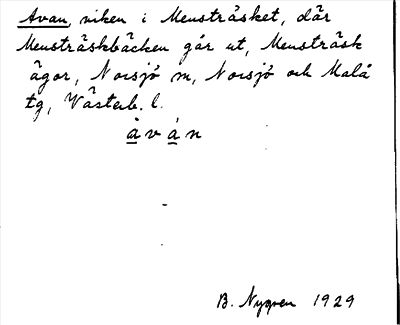 Avan, viken i Mensträsket, där
Mensträskbäcken går ut, Mensträsk
ägor, Norsjö sn, Norsjö och Malå
tg, Västerb. l.
àván
B. Nygren 1929